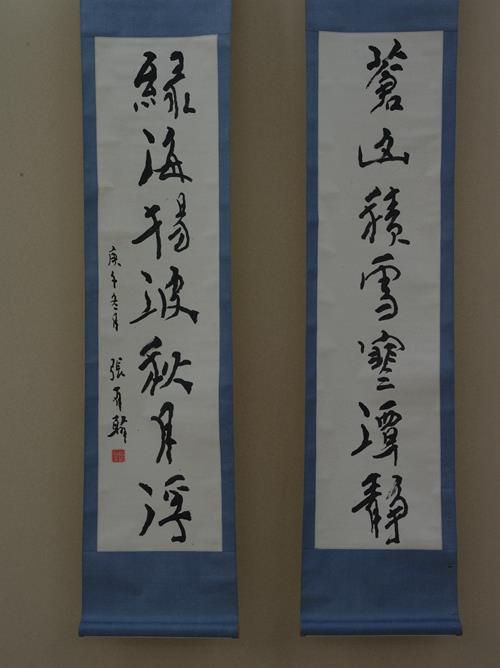 蒼山積雪寒潭靜
緑海揚波秋月浮
庚午冬月
張有